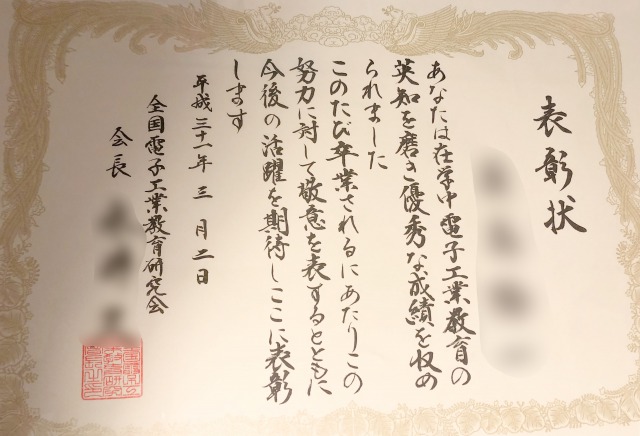 表彰状
あなたは在学中電子工業教育の
英知を磨き優秀な成績を収め
られました
このたび卒業されるにあたりこの
努力に対して敬意を表するとともに
今後の活躍を期待しここに表彰
します
平成三十一年三月二日
全国電子工業教育研究会
会長